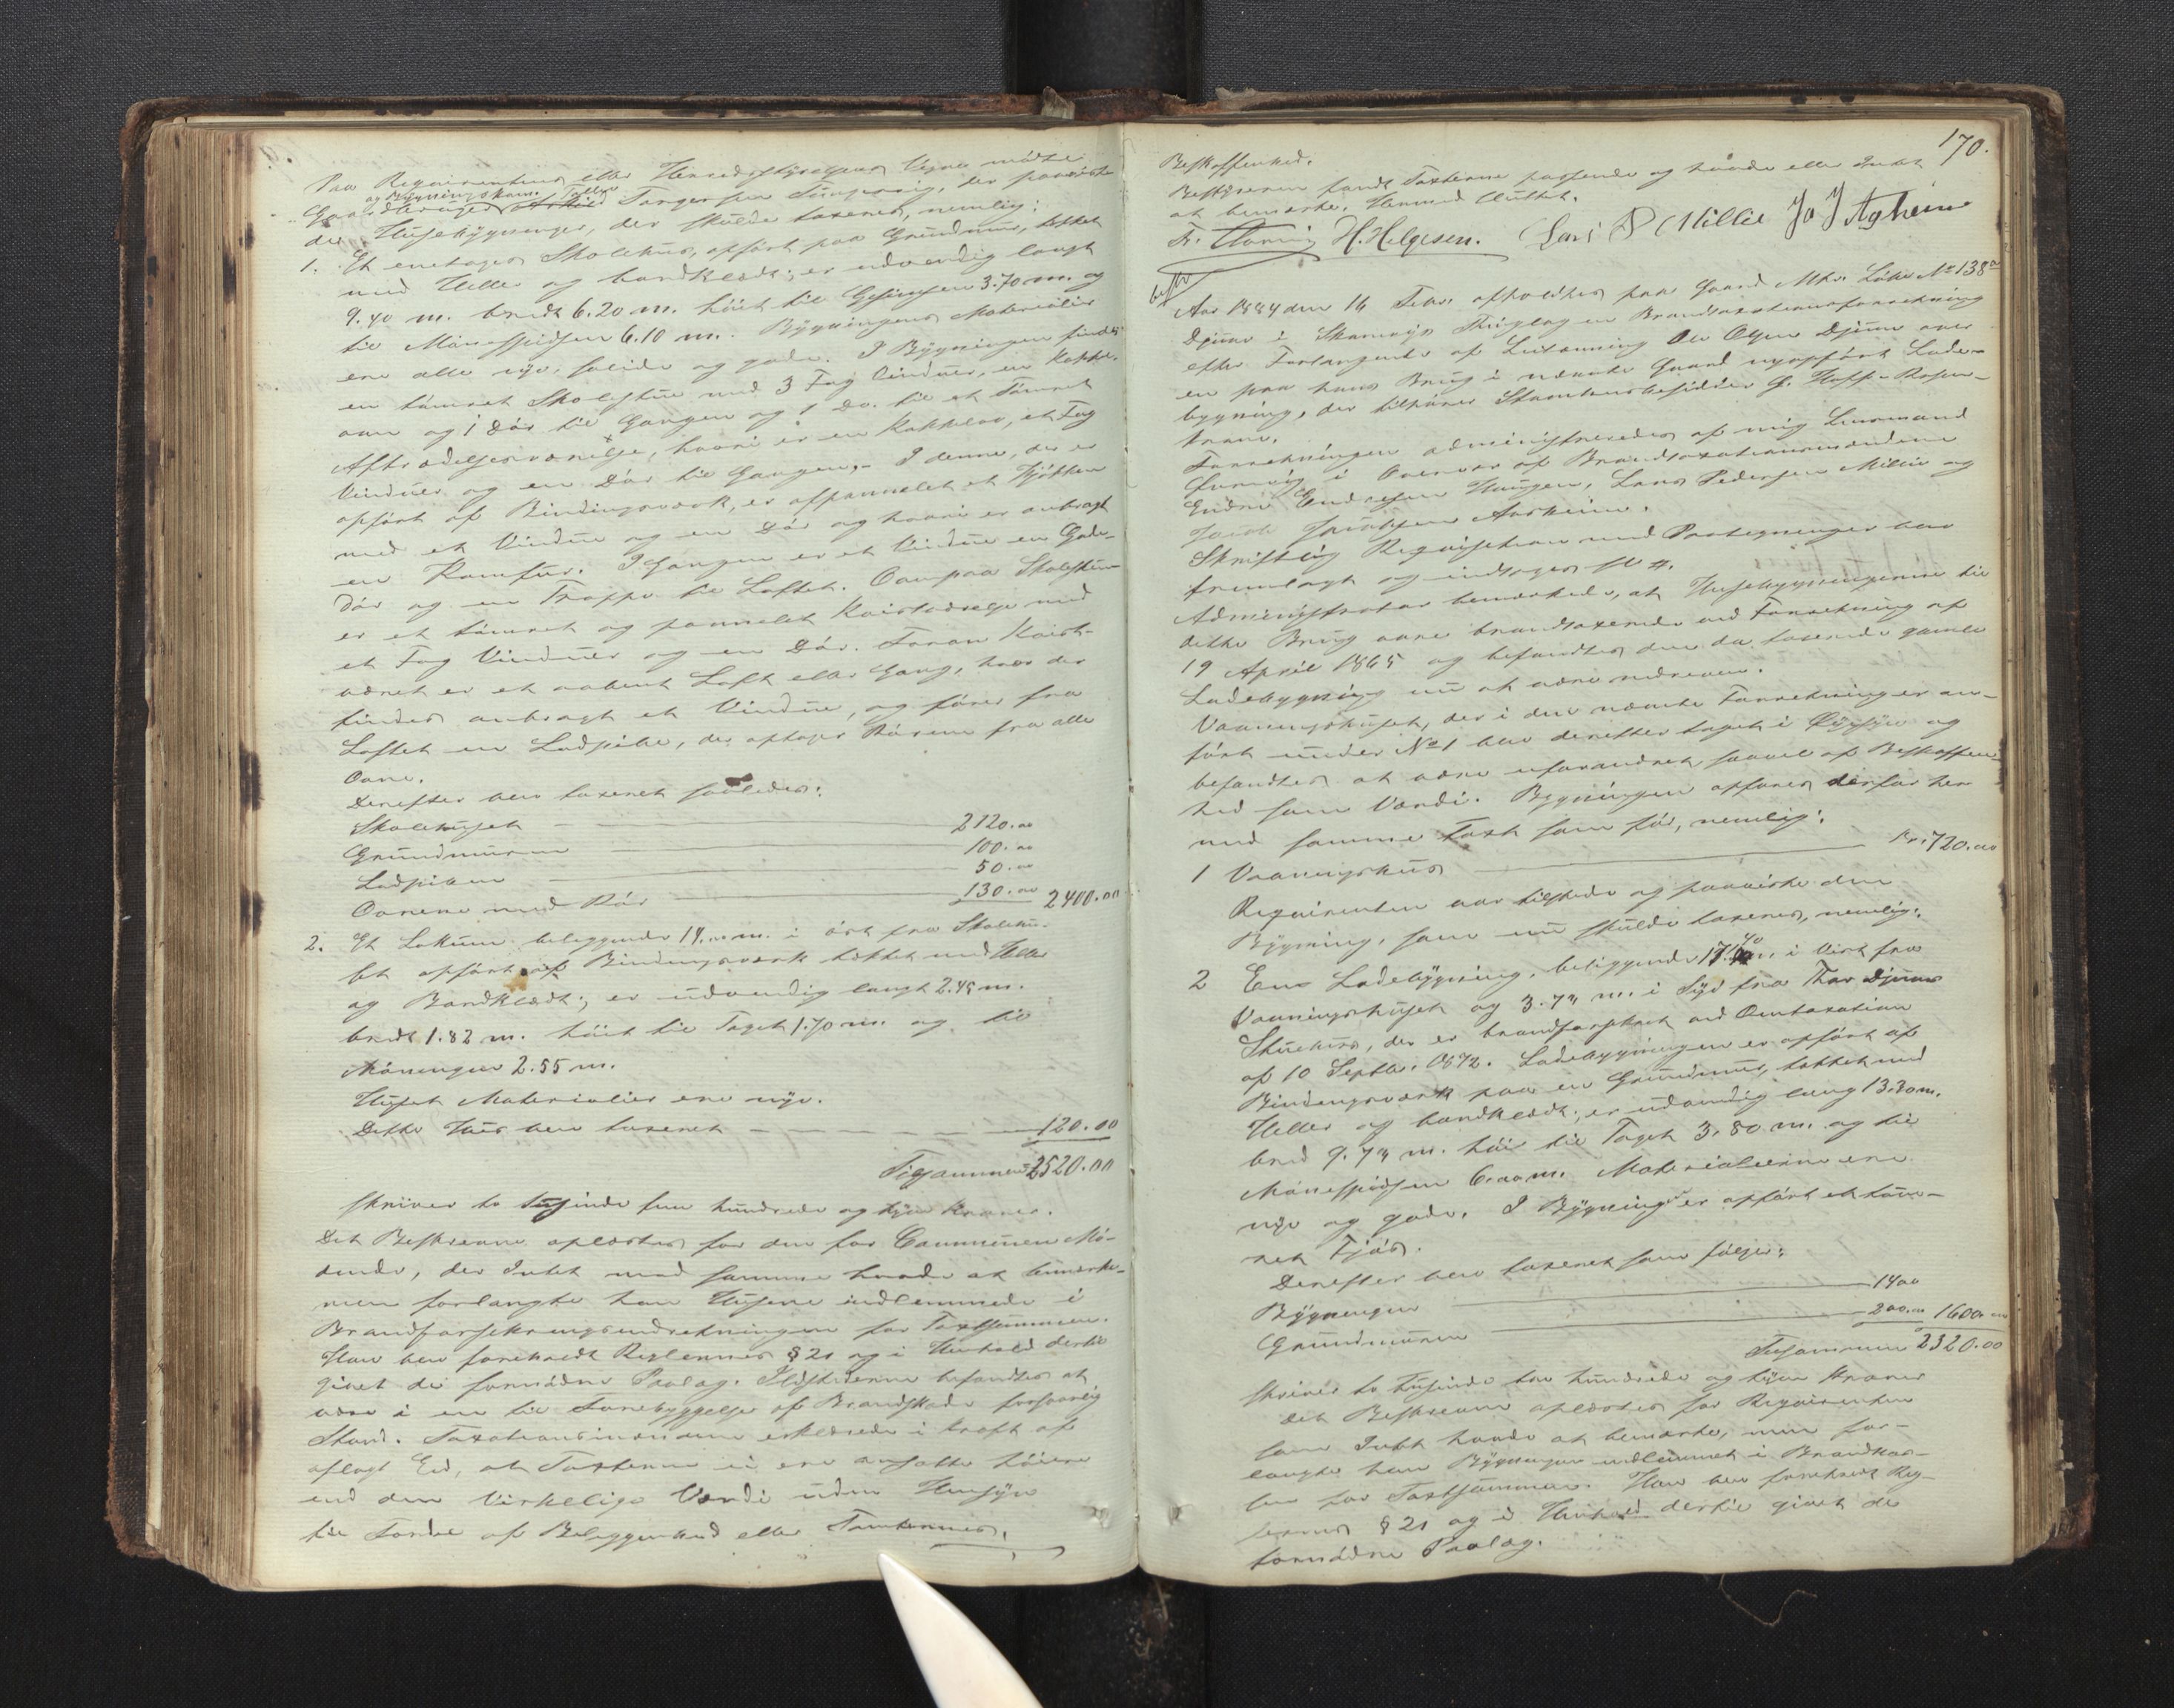 Paa Requirentens eller Herredsstyrelsens Vegne mødte
og Bygningskom.
Gaardbruger Torger Jensen der paaviste
de Husebygninger, der skulde taxeres, nemlig:
1. Et enetages Skolehus, opført paa Grundmur, tækket
med Heller og bordklædt; er udvendig langt
9.40 m. bredt 6.20 m. høit til Gesimsen 3.70 m. og
til Mønespidsen 6.10 m. Bygningens Materialier
ere alle nye, solide og gode. I Bygningen findes
en tømret Skolestue med 3 Fag Vinduer, en Kakkel-
ovn og 1 Dør til Gangen og 1 Do. til et tømret
Aftrædelsesværelse, hvori er en Kakkelov, et Fag
Vinduer og en Dør til Gangen. I denne, der er
opført af Bindingsværk, er afpannelet et Kjøkken
med et Vindue og en Dør og hvori er anbragt
en Komfur. I Gangen er et Vindue en Gade-
dør og en Trappe til Loftet. Ovenpaa Skolestuen
er et tømret og pannelet Kvistværelse med
et Fag Vinduer og en Dør. Foran Kvist-
værel er et aabent Loft eller Gang, hvor der
findes anbragt et Vindue, og fører fra
Loftet en Ladpibe, der optager Rørene fra alle
Ovne.
Derefter blev taxeret saaledes:
Skolehuset 2120.00
Grundmuren 100.00
Ladpiben 50.00
Ovnene med Rør 130.00 2400.00
2. Et Lokum beliggende 14.00 m. i øst fra Skolehu-
set opført af Bindingsværk tækket med Heller
og Bordklædt; er udvendig langt 2.45 m.
bredt 1.82 m. høit til Taget 1.70 m. og til
Møningen 2.55 m.
Huset Materialier ere nye.
Dette Hus blev taxeret 120.00
Tilsammen 2520.00
skriver to tusinde fem hundrede og tyve Kroner.
Det Beskrevne oplæstes for den for Communen Mø-
dende, der Intet mod samme havde at bemærke
men forlangte han Husene indlemmede i
Brandforsikringsindretningen for Taxtsummen.
Han blev foreholdt Reglernes § 21 og i Henhold dertil
givet de fornødne Paalæg. Ildstederne befandtes at
være i en til Forebyggelse af Brandskade forsvarlig
Stand. Taxationsmændene erklærede i kraft af
aflagt Eed, at Taxterne ei ere ansatte høiere
end den virkelige Værdi uden Hensyn
til Fordel af Beliggenhed eller Tomternes
170.
Beskaffenhed.
Bestyreren fandt Taxterne passende og havde eller Intet
at bemærke. Hermed sluttet.
H. Helgesen. Lars P Millie Jo J Asheim
Aar 1884 den 16 Febr. afholdtes paa Gaard Mtr. Løbe No 138a
Djúne i Skaanvigs Thinglag en Brandtaxationsforretning
efter Forlangende af Ole Olsen Djúne over
en paa hans Brug i nævnte Gaard nyopført Lade-
bygning, der tilhører Stamhusbesidder Hoff-Rosen-
krone.
Forretningen administreredes af mig Lensmand
i Overvær af Brandtaxationsmændene
Endre Endresen Haugen, Lars Pedersen Millie og
Jacob Jacobsen Aasheim.
Skriftlig Requisition med Paategninger blev
fremlagt og indtages
Administrator bemærkede, at Husebygningerne til
dette Brug vare brandtaxerede ved Forretning af
19 April 1865 og befandtes den da taxerede gamle
Ladebygning nu at være nedreven.
Vaaningshuset, der i den nævnte Forretning er an-
ført under No 1 blev derefter taget i Øiesyn og
befandtes at være uforandret, saavel af Beskaffen-
hed som Værdi. Bygningen opføres derfor her
med samme Taxt som før, nemlig:
1 Vaaningshus Kr. 720.00
Requirenten var tilstede og paaviste den
Bygning, som nu skulde taxeres, nemlig:
2 Een Ladebygning, beliggende i Vest fra
Vaaningshuset og 3.74 m. i Syd fra Thor Djúnes
Stuehus, der er brandforsikret ved Omtaxation
af 10 Septbr. 1872. Ladebygningen er opført af
Bindingsværk paa en Grundmur, tækket med
Heller og bordklædt; er udvendig lang 13.30 m.
bred 9.74 m. høi til Taget 3.80 m. og til
Mønespidsen 6.00 m. Materialierne ere
nye og gode. I Bygningen er opført et tøm-
ret Fjøs.
Derefter blev taxeret som følger:
Bygningen 1400
Grundmuren 200.00 1600.00
Tilsammen 2320.00
skriver to tusinde tre hundrede og tyve Kroner
Det Beskrevne oplæstes for Requirenten
som Intet havde at bemærke, men for-
langte han Bygningen indlemmet i Brandkas-
sen for Taxtsummen. Han blev foreholdt Reg-
lernes § 21 og i Henhold dertil givet de
fornødne Paalæg.